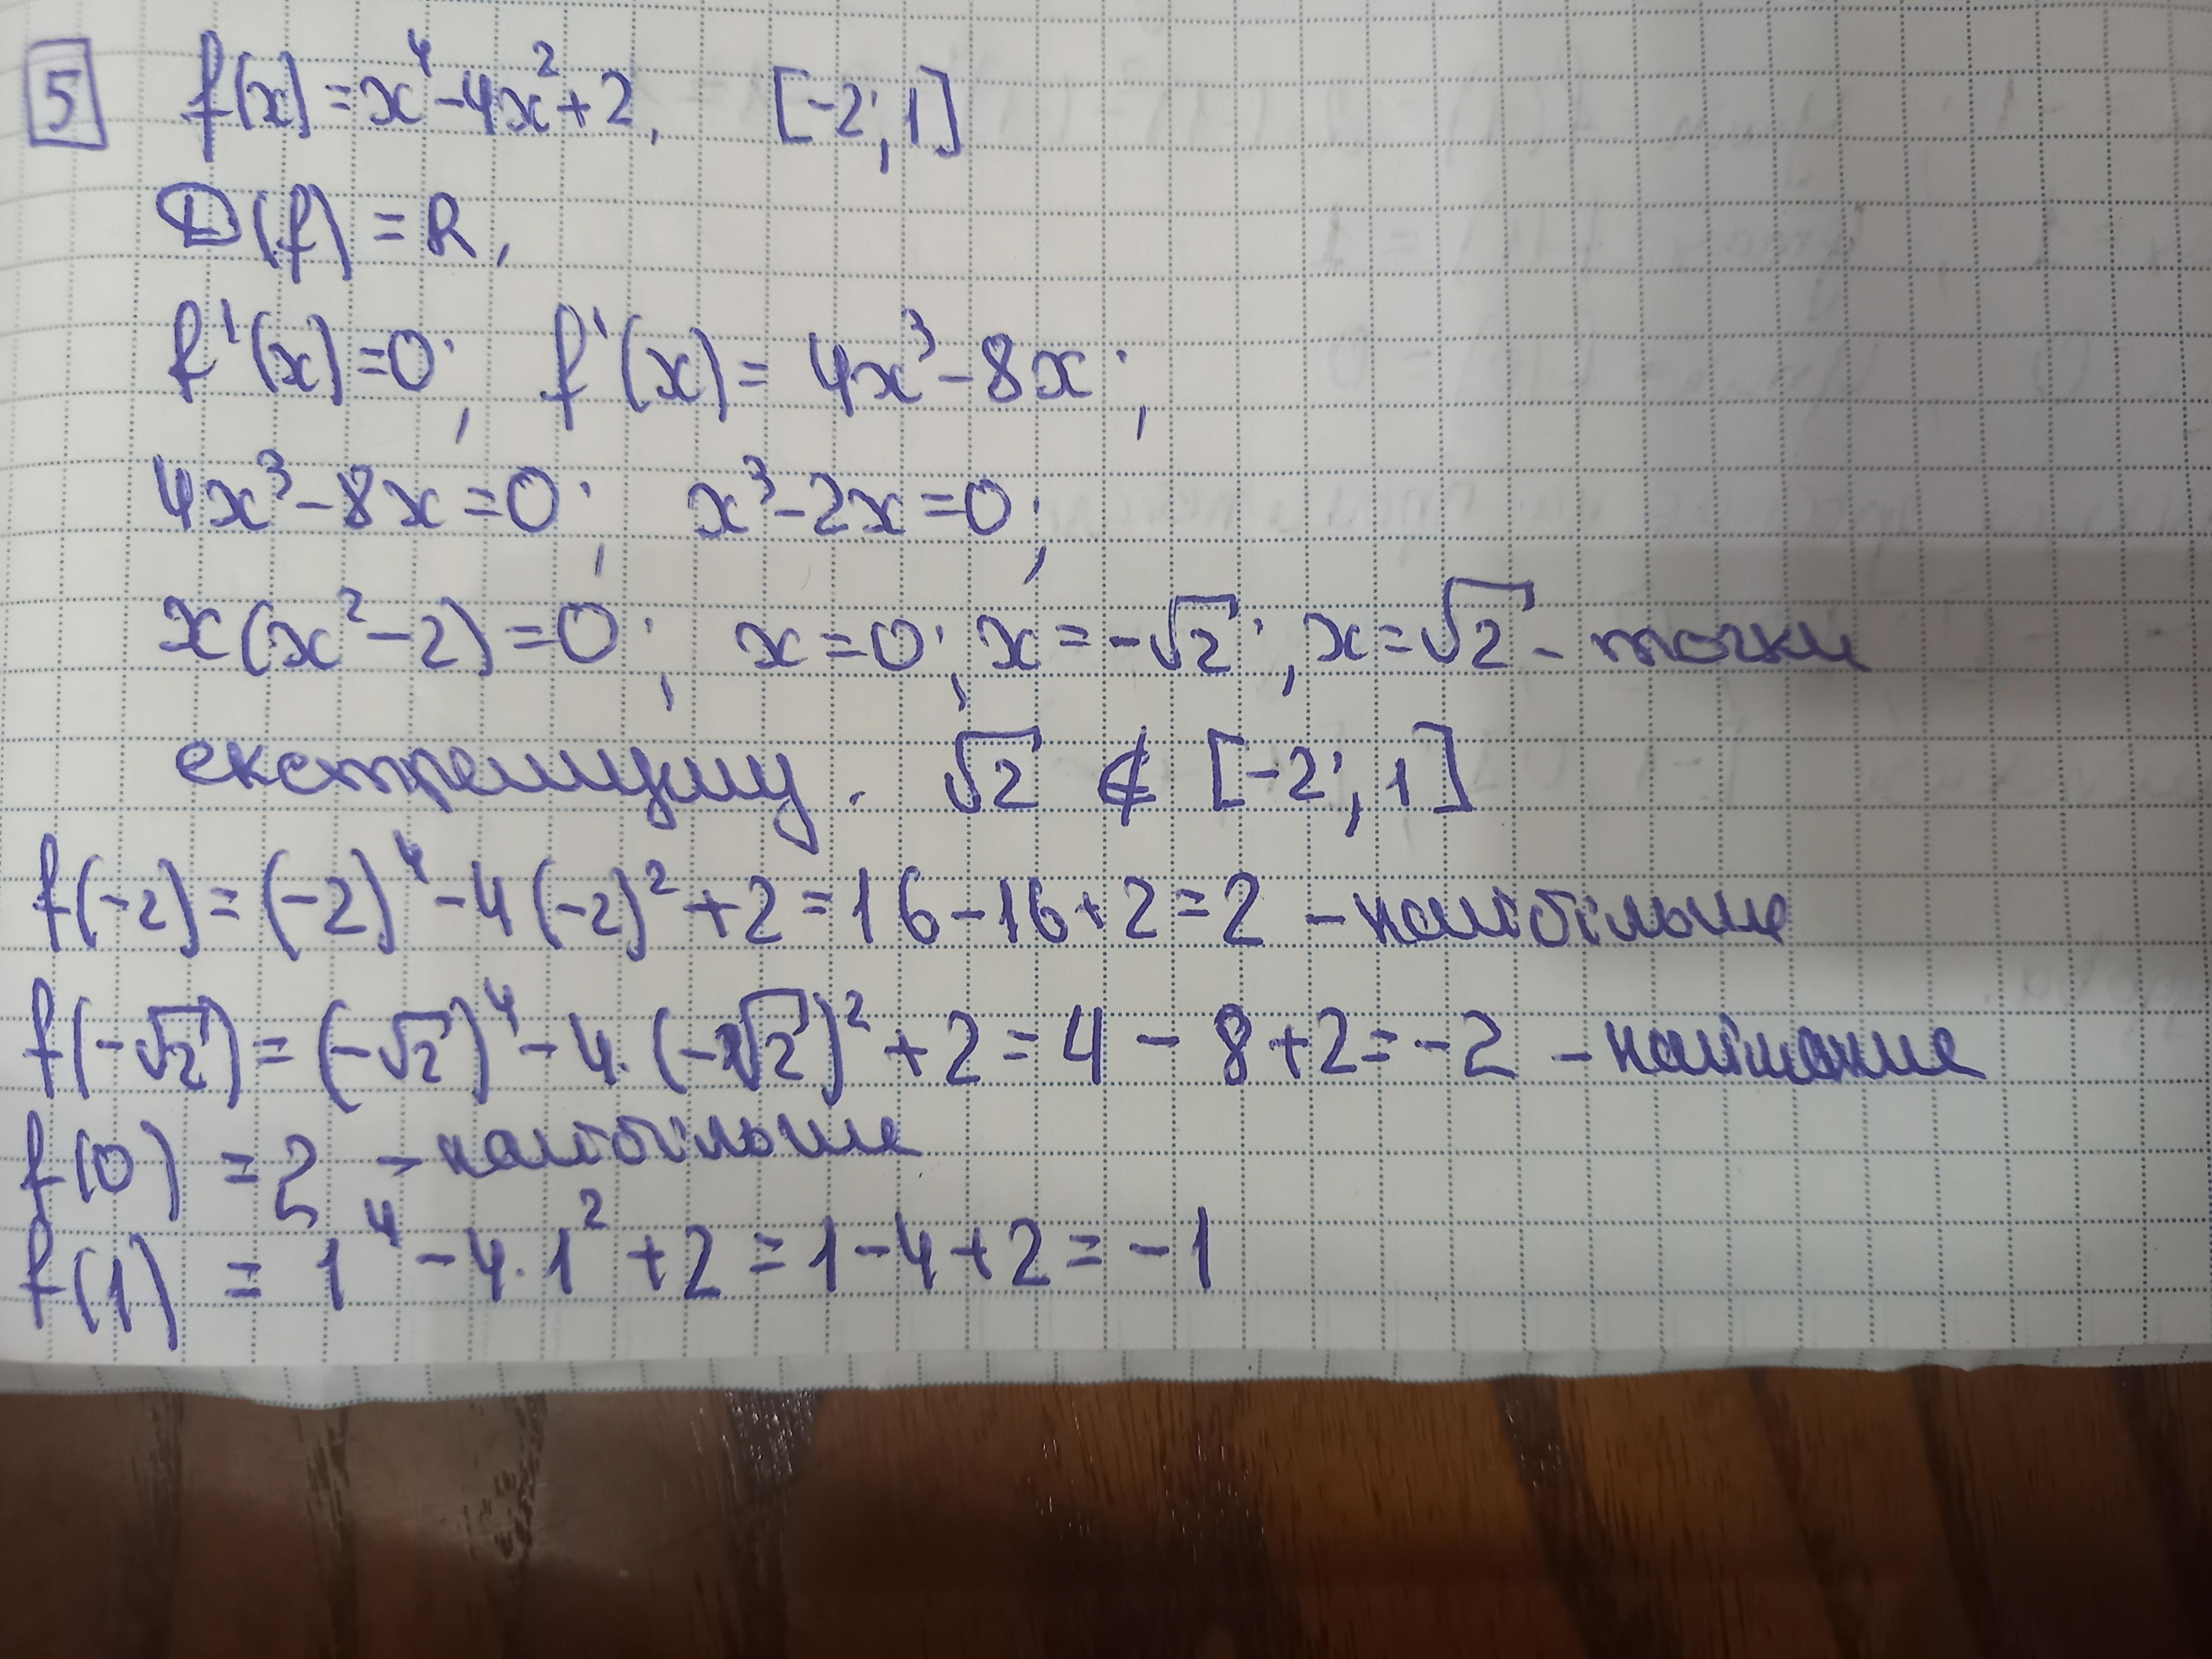 5 f(x)=x⁴-4x²+2, [-2;1]
D(f)=R,
f'(x)=0; f'(x)=4x³-8x;
4x³-8x=0; x³-2x=0;
x(x²-2)=0; x=0; x=-√2; x=√2 - точки
екстремуму. √2 ∉ [-2;1]
f(-2)=(-2)⁴-4(-2)²+2=16-16+2=2 - найбільше
f(-√2)=(-√2)⁴-4·(-√2)²+2=4-8+2=-2 - найменше
f(0)=2 - найбільше
f(1)=1⁴-4·1²+2=1-4+2=-1